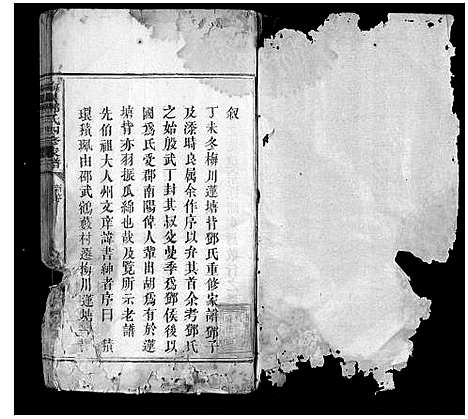 叙
丁未冬梅川蓬塘背鄧氏重修家譜鄧子
及滦時良属余作序以弁其首余考鄧氏
之始殷武丁封其叔父曼季爲鄧侯後以
國爲氏爰郡南陽偉人輩出胡爲有於蓬
塘背亦羽振瓜綿也哉及覽所示老譜
先伯祖大人州文庠諱書紳者序曰 積
環積珮由邵武鶴藪村遷梅川蓬塘